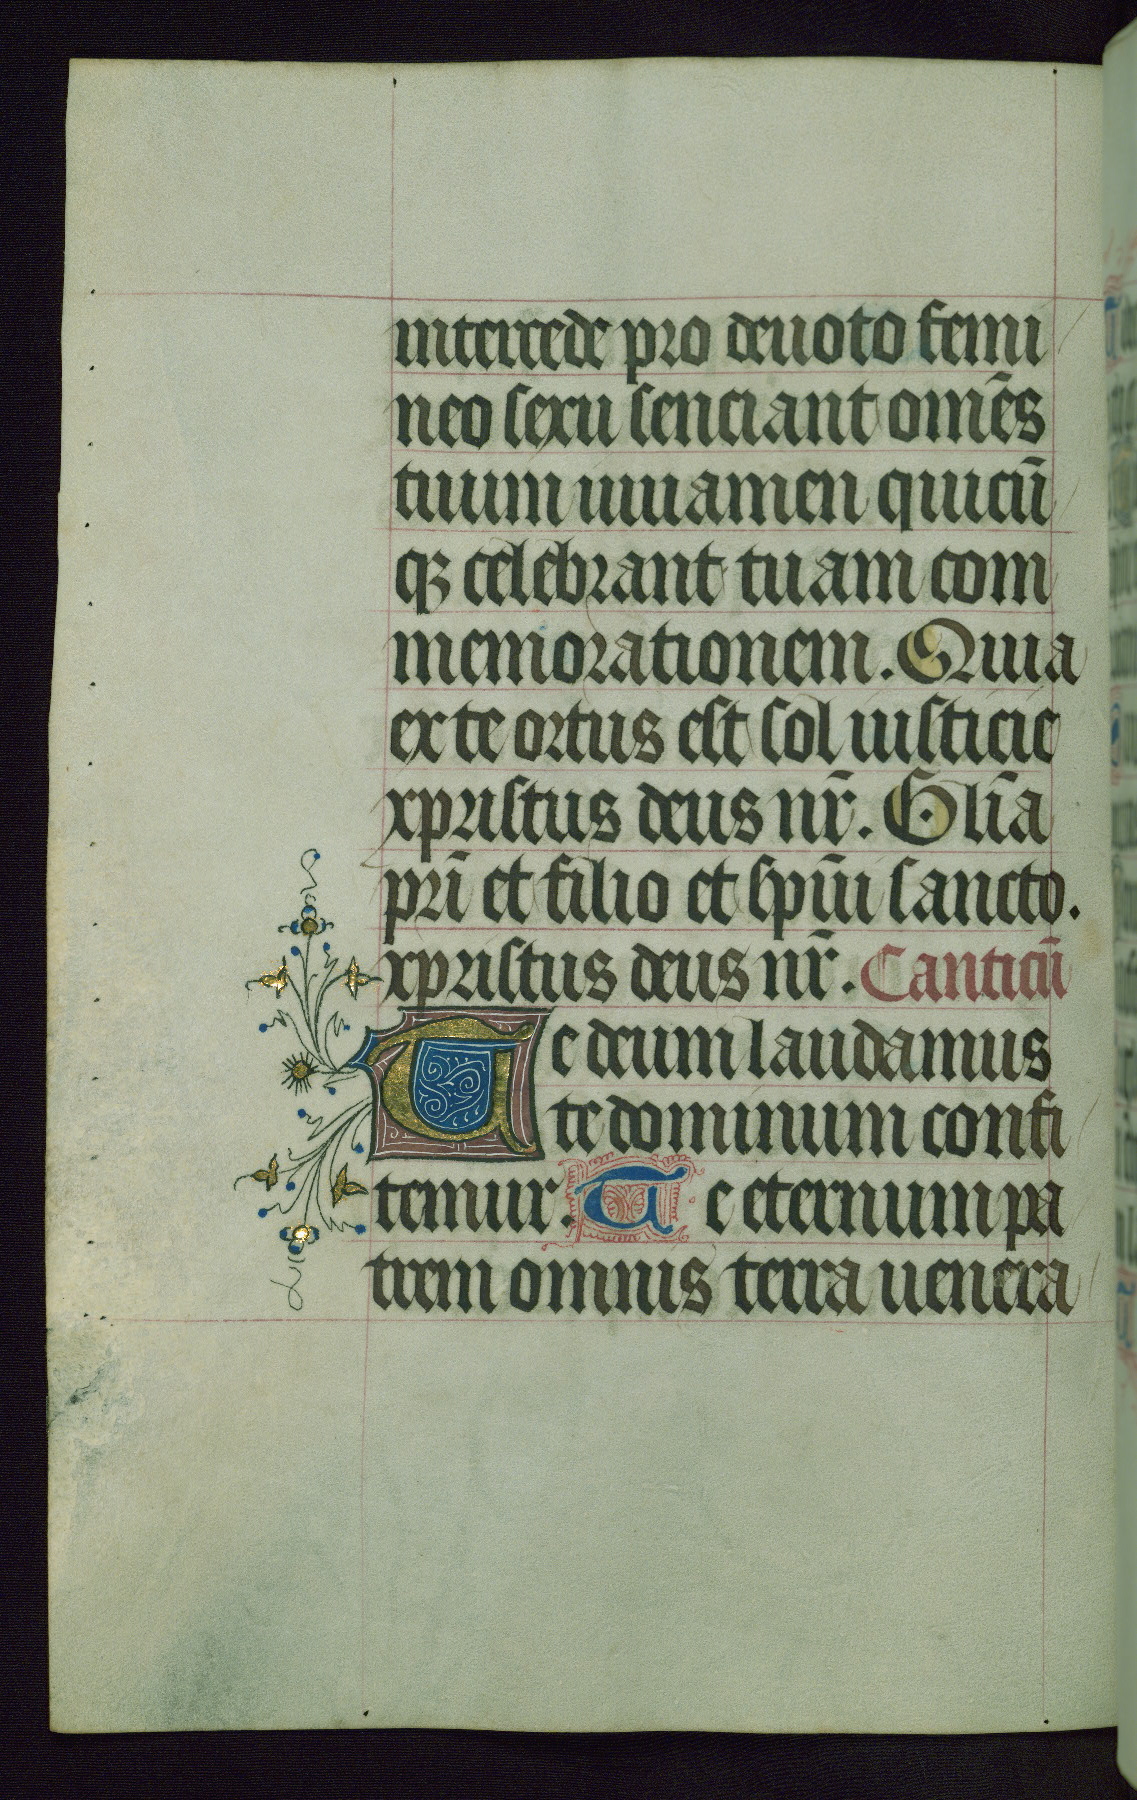 intercede pro deuoto femi
neo sexu senciant om̄es
tuum iuuamen quicū
qꝫ celebrant tuam com
memorationem. Quia
ex te ortus est sol iusticie
xpristus deus nr̄. Glīa
prī et filio et spūi sancto.
xpristus deus nr̄. Canticū
Te deum laudamus
te dominum confi
temur. Te eternum pa
trem omnis terra uenera